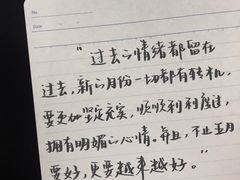 No.
Date
“过去的情绪都留在
过去，新的月份一切都有转机，
要更加坚定充实，顺顺利利度过，
拥有明媚的心情。并且，不止五月
要好，更要越来越好。”